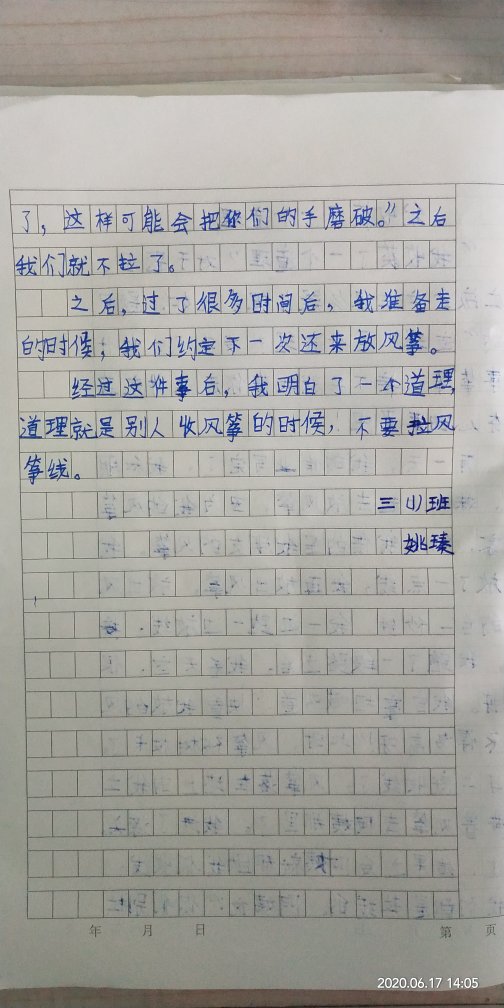 了，这样可能会把你们的手磨破。”之后
我们就不拉了。
之后，过了很多时间后，我准备走
的时候，我们约定下一次还来放风筝。
经过这件事后，我明白了一个道理，
道理就是别人收风筝的时候，不要拉风
筝线。
三(1)班
姚瑧
年 月 日 第 页
2020.06.17 14:05